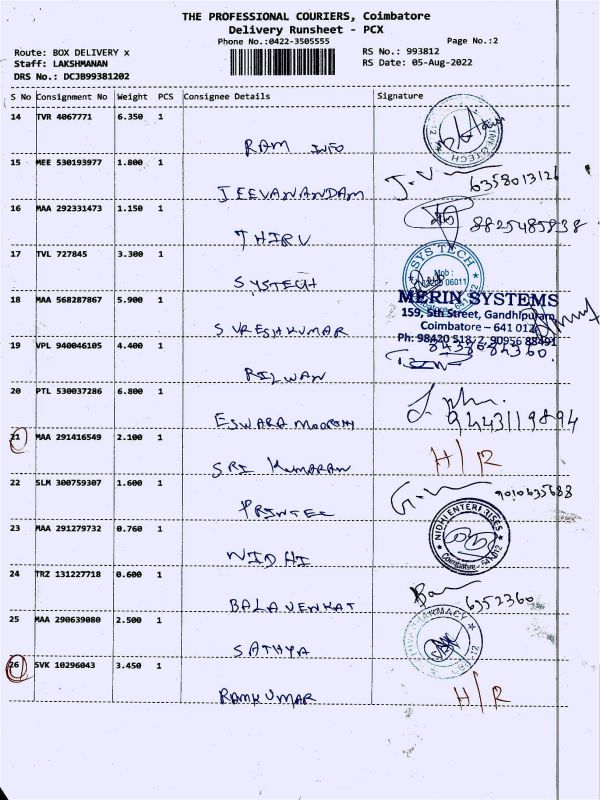 THE PROFESSIONAL COURIERS, Coimbatore
Delivery Runsheet - PCX
Phone No.:0422-3505555
Page No.:2
Route: BOX DELIVERY x
RS No.: 993812
Staff: LAKSHMANAN
RS Date: 05-Aug-2022
DRS No.: DCJB99381202
S No Consignment No Weight PCS Consignee Details Signature
14 TVR 4067771 6.350 1
RAM INFO
INFOTECH
15 MEE 530193977 1.800 1
JEEVANANDAM
J-V
6358013126
16 MAA 292331473 1.150 1
THIRU
8825485838
17 TVL 727845 3.300 1
SYSTECH
SYS TECH
Mob :
06011
18 MAA 568287867 5.900 1
SURESHKUMAR
MERIN SYSTEMS
159, 5th Street, Gandhipuram,
Coimbatore – 641 012
Ph: 98420 518 2, 90956 88491
19 VPL 940046105 4.400 1
RILWAN
20 PTL 530037286 6.800 1
ESWARA MOORTHY
9443119894
21 MAA 291416549 2.100 1
SRI KUMARAN
H/R
22 SLM 300759307 1.600 1
PRINTEC
9010635688
23 MAA 291279732 0.760 1
NIDHI
NIDHI ENTERPRISES
Coimbatore
24 TRZ 131227718 0.600 1
BALA VENKAT
6352360
25 MAA 290639080 2.500 1
SATHYA
PHARMACY
26 SVK 10296043 3.450 1
RAMKUMAR
H/R